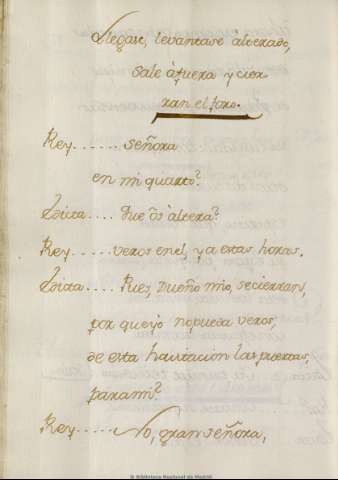 Llegase, levantase alterado,
sale à fuera y cier
ran el foro.
Rey...... señora
en mi quarto?
.... Que ôs altera?
Rey..... veros en el, y a estas horas.
.... Pues, Dueño mio, se cierran,
por que yo no pueda veros,
de esta havitacion las puertas,
para mi?
Rey..... No, gran señora,
© Biblioteca Nacional de Madrid